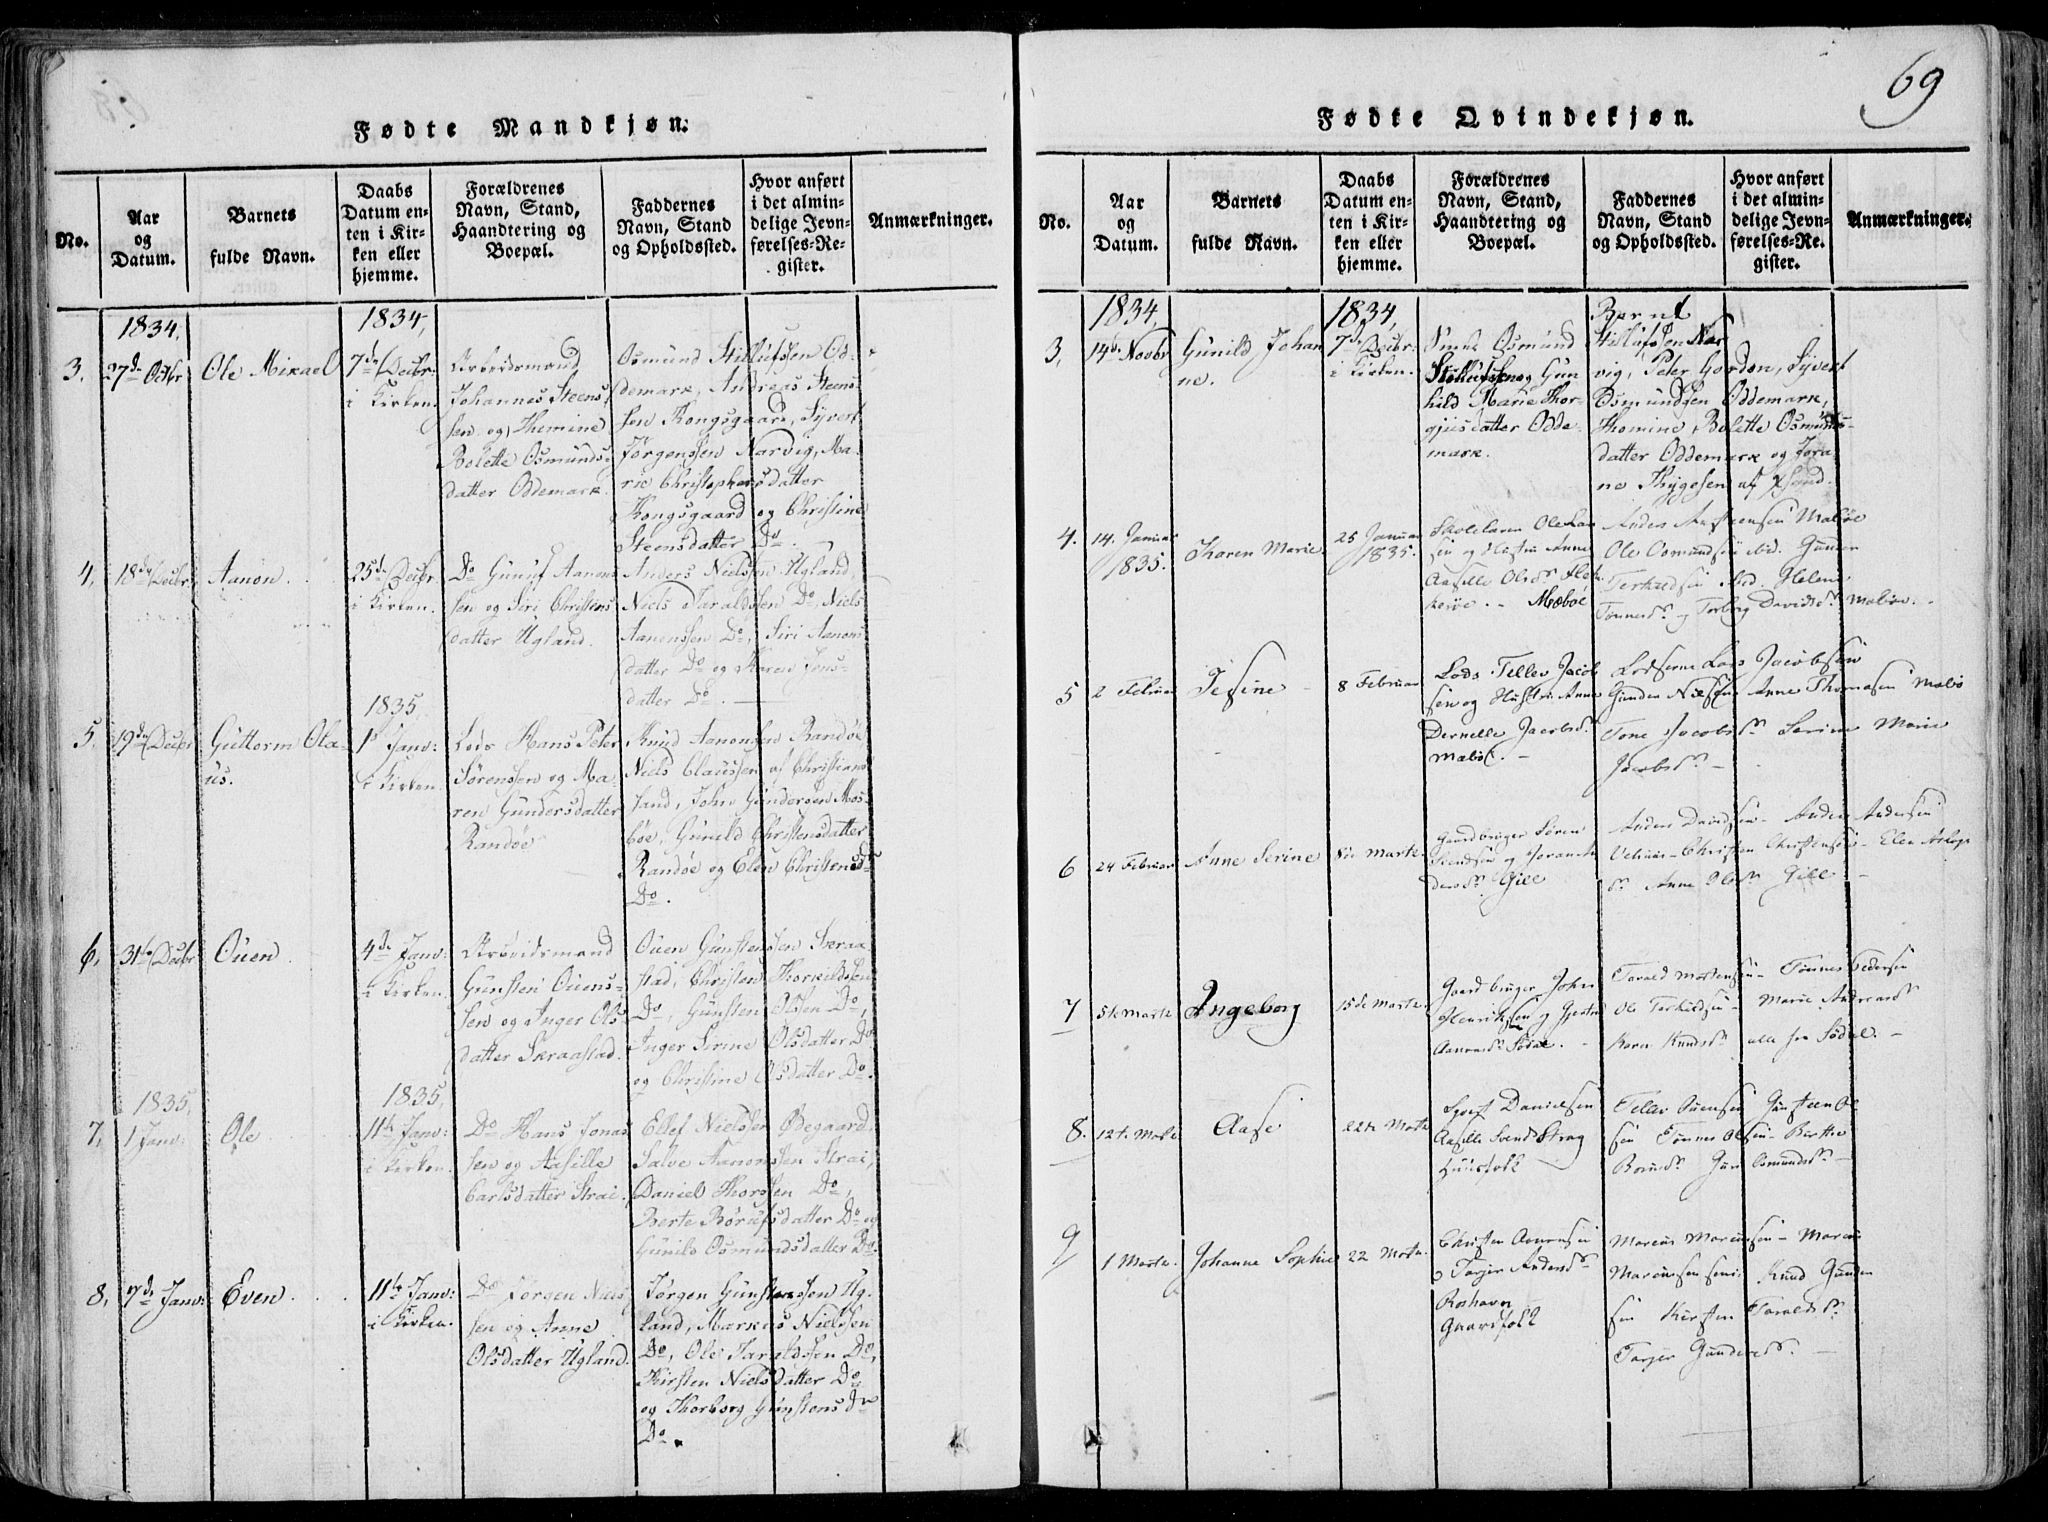 69
Fødte Mandkjøn.
No.
Aar
og
Datum.
Barnets
fulde Navn.
Daabs
Datum en-
ten i Kir-
ken eller
hjemme.
Forældrenes
Navn, Stand,
Haandtering og
Boepæl.
Faddernes
Navn, Stand
og Opholdssted.
Hvor anført
i det almin-
delige Jevn-
førelses-Re-
gister.
Anmærkninger.
1834.
3.
27de Octbr
Ole Mikael
1834,
7de Decbr.
i Kirken.
Arbeidsmand
Johannes Steens-
sen og Themine
Bolette Osmunds-
datter Oddemark.
Osmund Stillufssen Od-
demark, Andreas Steens-
sen Kongsgaard, Syvert
Jørgenssen Narvig, Ma-
rie Christophersdatter
Kongsgaard og Christine
Steensdatter Do.
4,
18de Decbr
Aanon.
25de Decbr
i Kirken.
Do Gunuf Aanons-
sen og Siri Christens
datter Ugland.
Anders Nielssen Ugland,
Niels Taraldssen Do, Niels
Aanenssen Do, Siri Aanons
datter Do og Karen Jens-
datter Do.
5.
19de Decbr
Guttorm Ola-
us.
1835
1ste Janv:
i Kirken.
Lods Hans Peter
Sørenssen og Ma-
ren Gundersdatter
Randøe
Knud Aanonssen Randøe
Niels Claussen af Christians
sand, John Gundersen Mos-
bøe, Gunild Christensdatter
Randøe og Elen Christensdr
Do.
6,
31te Decbr
Ouen
4de Janv:
i Kirken.
Arbeidsmand
Gunsten Ouens-
sen og Inger Ols-
datter Skraastad.
Ouen Gunstenssen Skraa
stad, Christen Thorkildsen
Do, Gunsten Olssen Do,
Inger Serine Olsdatter Do
og Christine Olsdatter Do.
1835,
7,
1 Janv:
Ole
1835,
11te Janv:
i Kirken.
Do Hans Jonas
sen og Aasille
Carlsdatter Strai.
Ellef Nielssen Øegaard
Salve Aanonssen Strai,
Daniel Thorssen Do,
Berte Børufsdatter Do og
Gunild Osmundsdatter Do.
8,
7de Janv:
Even
11te Janv:
i Kirken.
Do Jørgen Niels
sen og Anne
Olsdatter Ugland.
Jørgen Gunstenssen Ug-
land, Markus Nielssen
Do, Ole Taraldssen Do,
Kirsten Nielsdatter Do
og Thorborg Gunstensdr
Do.
Fødte Qvindekjøn.
No.
Aar
og
Datum.
Barnets
fulde Navn.
Daabs
Datum en-
ten i Kir-
ken eller
hjemme.
Forældrenes
Navn, Stand,
Haandtering og
Boepæl.
Faddernes
Navn, Stand
og Opholdssted.
Hvor anført
i det almin-
delige Jevn-
førelses-Re-
gister.
Anmærkninger.
1834,
3,
14de Novbr
Gunild Johan
ne.
1834,
7de Decbr.
i Kirken.
Osmund
Stillufssen og Gun
hild Marie Thor-
gjusdatter Odde-
mark.
Bernt
Stillufssen Nar
vig, Peter Gordon, Syvert
Osmundsen Oddemark,
Thomine Bolette Osmunds-
datter Oddemark og Jora-
ne Thygesen af Xsand.
4.
14. Januar
1835.
Karen Marie
25 Januar
1835.
Skolelærer Ole Lar
sen og Hustru Anne
Aasille Olsdr Flek
kerøe. - Mæbøe
Anders Anstensen Mabøe
Ole Osmundsen ibid. Gunder
Terkeldsen ibd. Helene
Tønnesdr og Torborg Davidsdr Mabøe.
5
2 Februar
Jesine
8 Februar
Lods Tellev Jacob
sen og Hustru Anne
Pernelle Jacobsd.
Mabøe. -
Lodserne Lars Jacobsen
Gunder Nielsen Anne Thomasen Mabø
Tone Jacobsdr Serine Marie
Jacobsdr -
6
24 Februar
Anne Serine
8de Marts.
Gaardbruger Søren
Svendsen og Joran An
dersdr Gill
Anders Davidsen - Anders Andersen
- Christen Christensen - Elen Aslags
dr Anne Olsdr Gill. -
7
5te Marts
Ingeborg
15de Marts.
Gaardbruger John
Henriksen og
Aanensdr Sødal. -
Tarald Mortensen - Tønnes Pedersen
Ole Terkeldsen - Marie Andreasdr
Karen Knudsdr alle fra Sødal. -
8.
12t. Marts.
Aase
22de Marts
Syvert Danielsen
Aasille Svendsd. Strag
Huusfolk
Tellev Ouensen Gunsteen Ol
sen Tønnes Olsen - Berthe
Gun Osmundsdr. -
9
1 Marts.
Johanne Sophie
22 Marts.
Christen Aanensen
o Torjer Andersdr
Roshavn
Gaardfolk
Marcus Marcussen - Marcus
Marcussen seni. Knud Gunder
sen Kirsten Taraldsdr
Torjer Gundersdr. -